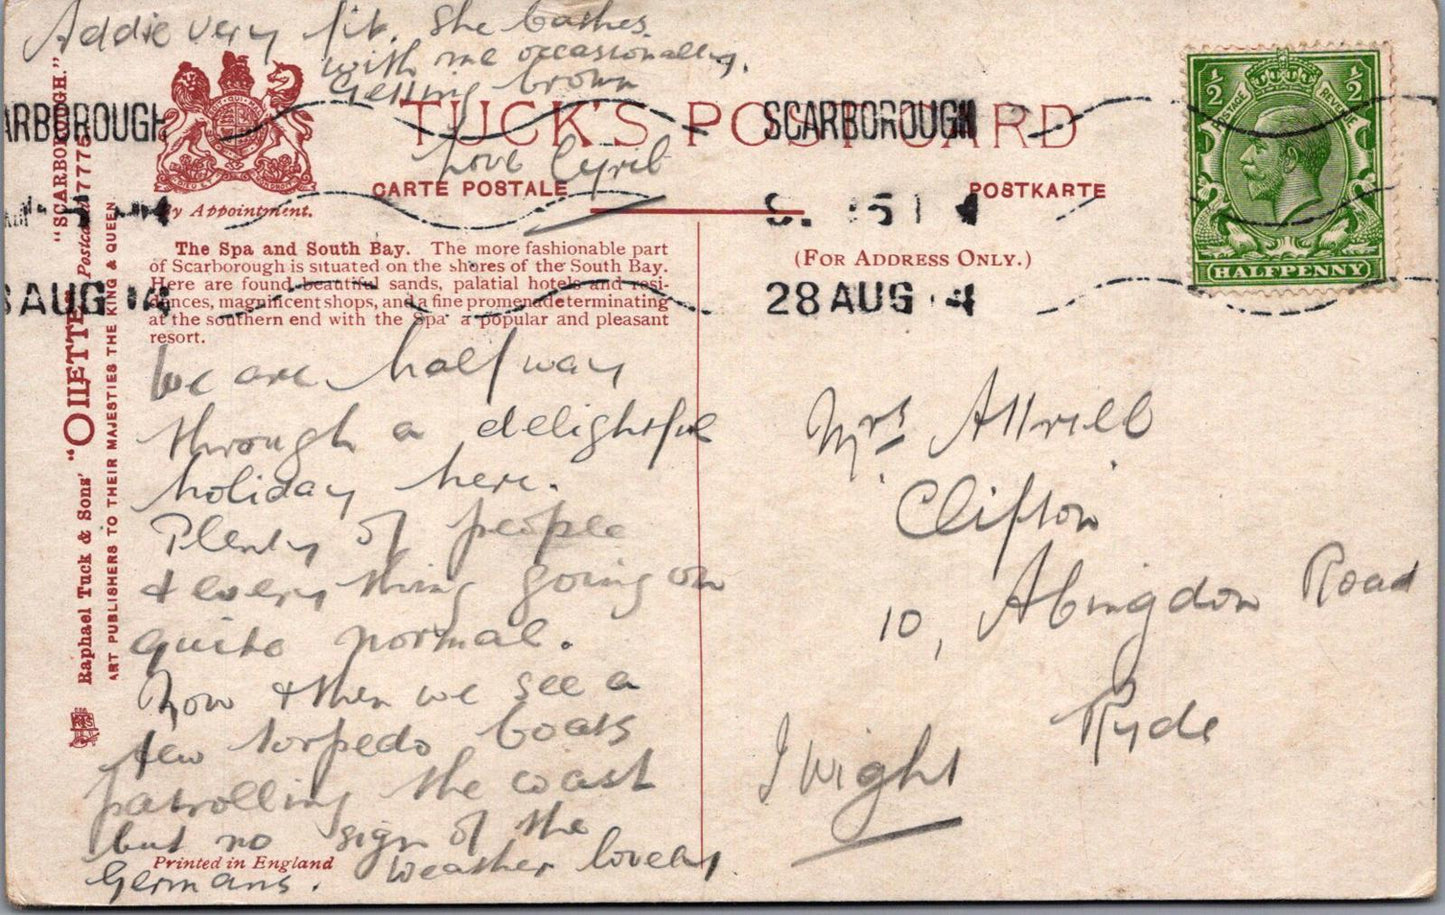 Addie very fit. She bathes
with me occasionally,
Getting brown
Love Cyril
TUCK'S POST CARD
CARTE POSTALE
POSTKARTE
By Appointment.
(FOR ADDRESS ONLY.)
ARBOROUGH
AUG 14
SCARBOROUGH
28 AUG 4
½ ½
POSTAGE REVENUE
HALFPENNY
"SCARBOROUGH."
Raphael Tuck & Sons' "OILETTE" Postcard 7775
ART PUBLISHERS TO THEIR MAJESTIES THE KING & QUEEN
The Spa and South Bay. The more fashionable part
of Scarborough is situated on the shores of the South Bay.
Here are found beautiful sands, palatial hotels and resi-
dences, magnificent shops, and a fine promenade terminating
at the southern end with the Spa a popular and pleasant
resort.
We are half way
through a delightful
holiday here.
Plenty of people
& everything going on
quite normal.
Now & then we see a
few torpedo boats
patrolling the coast
but no sign of the
Germans. Weather lovely
Printed in England
Mrs Attrill
Clifton
10, Abingdon Road
Ryde
I Wight